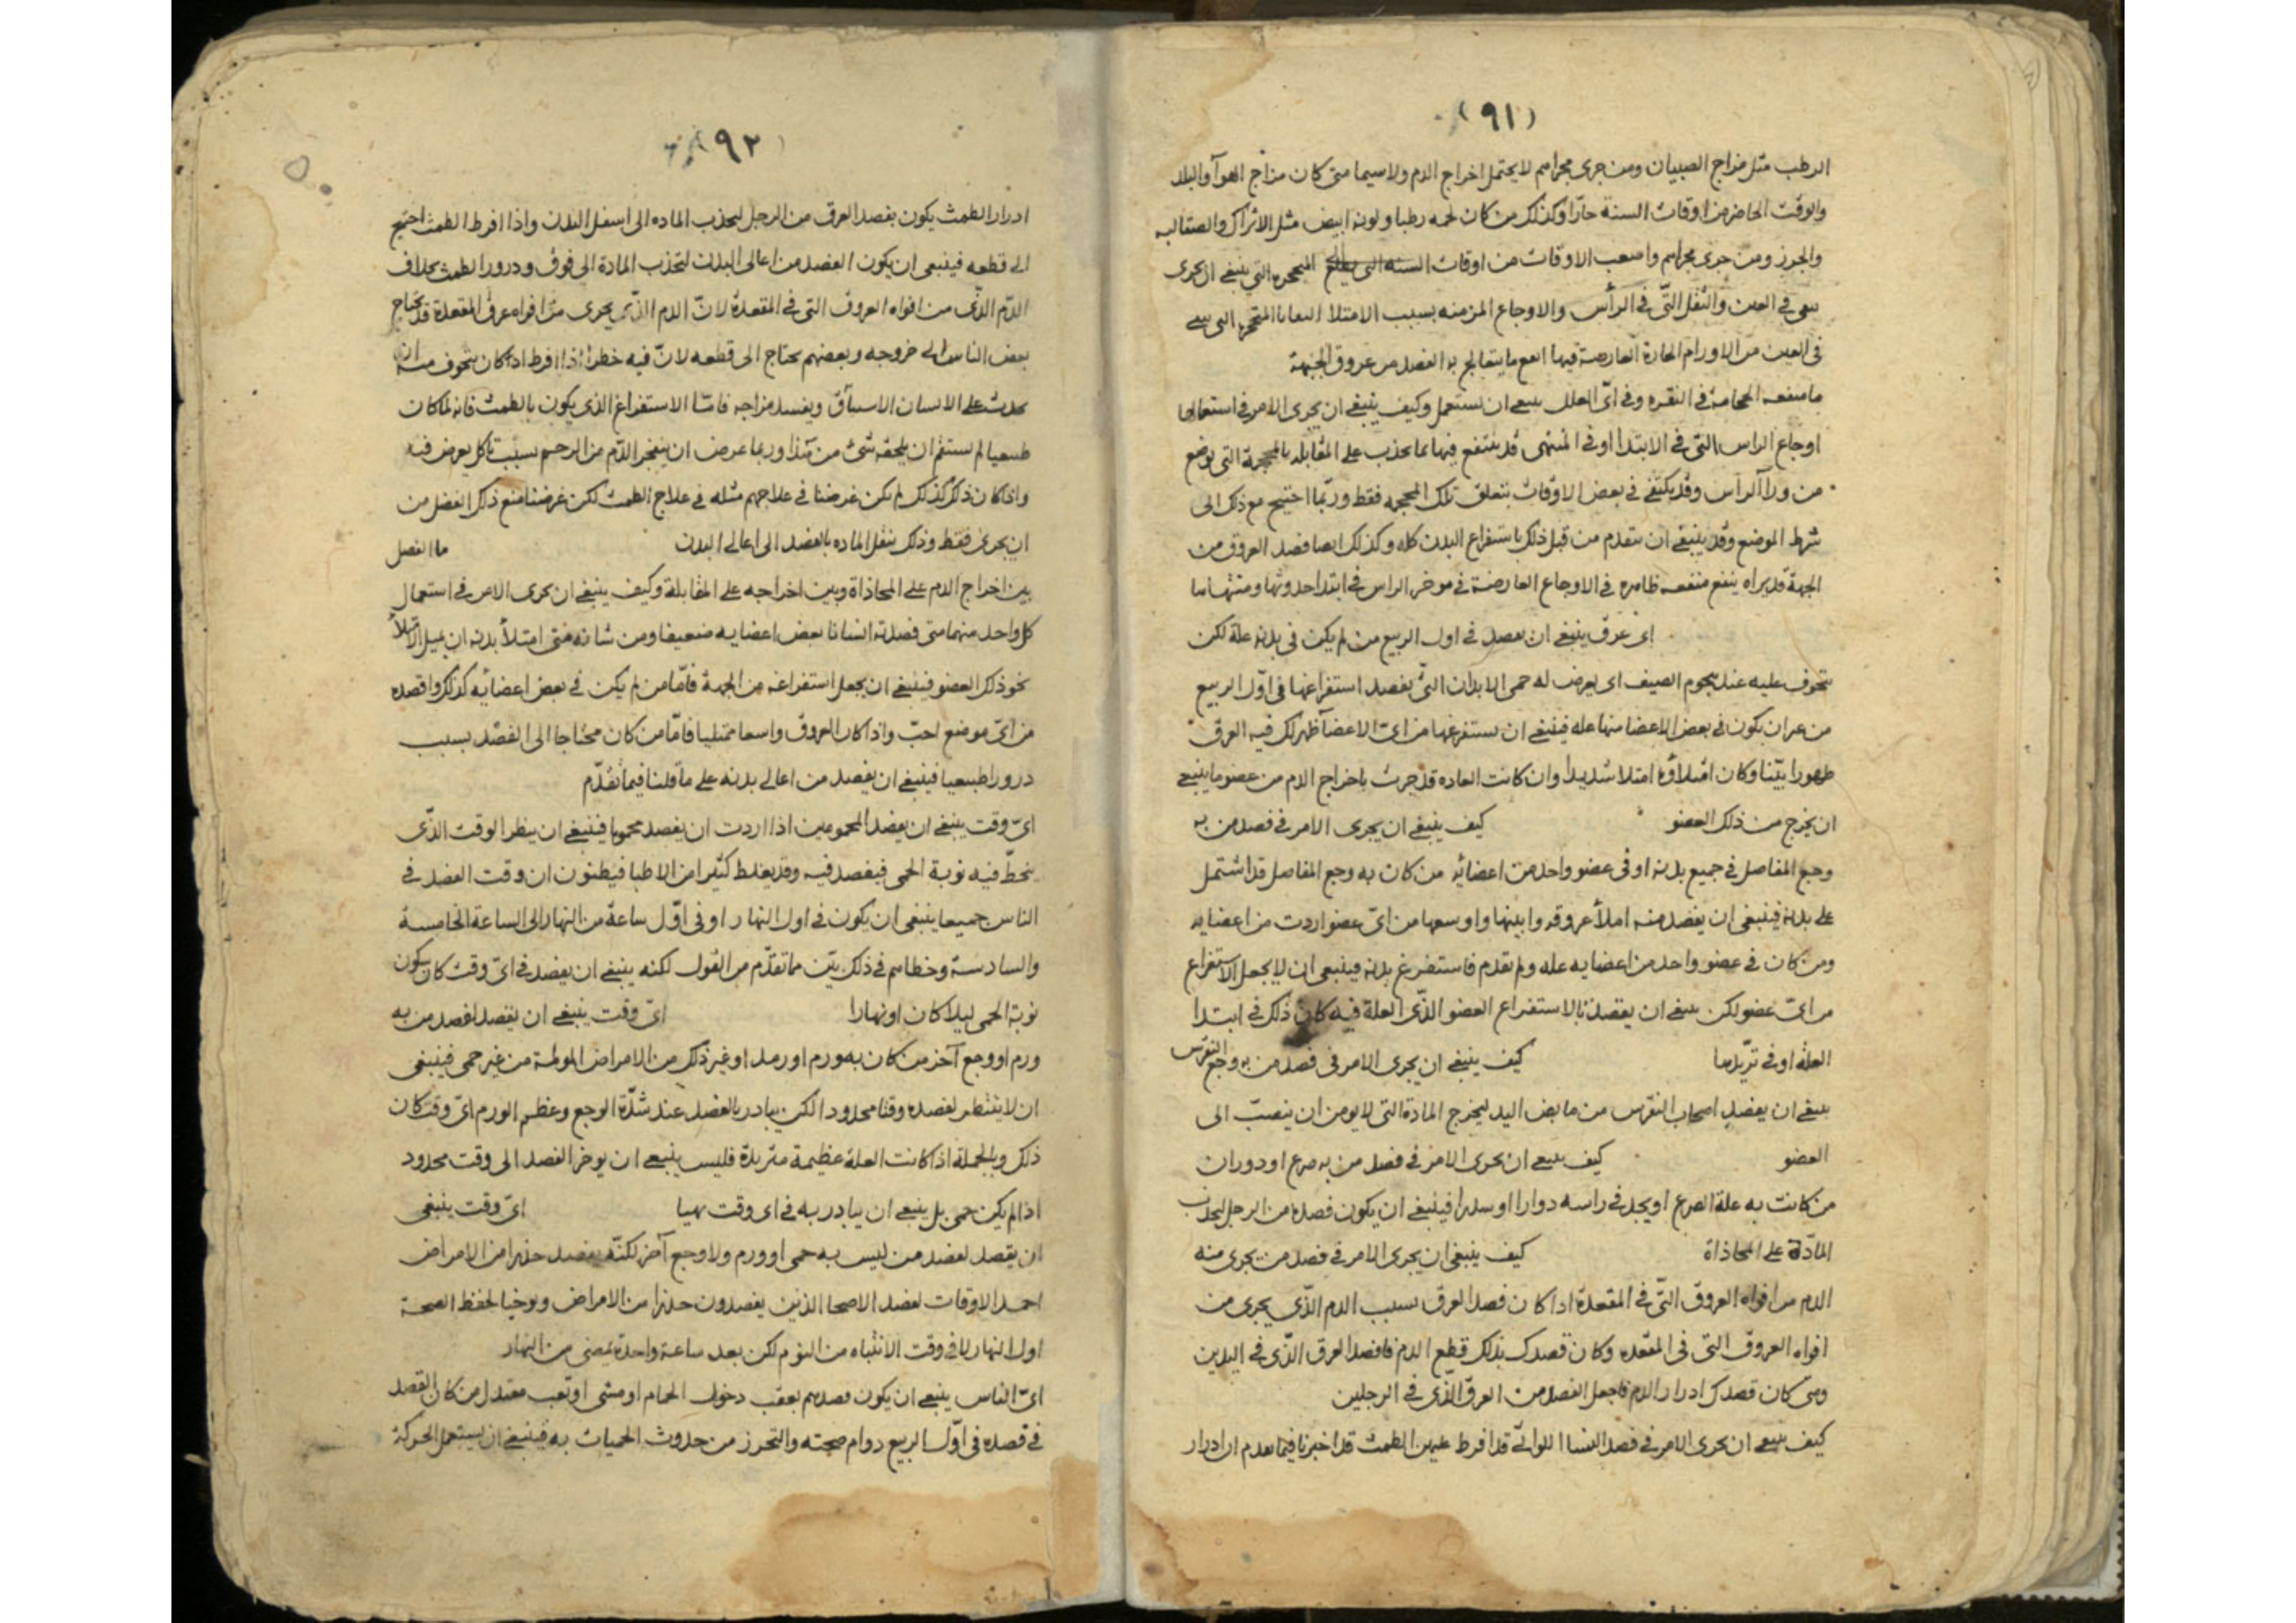 (٩١)
الرطب مثل مزاج الصبيان ومن جرى مجراهم لا يحتمل اخراج الدم ولا سيما متى كان مزاج الهوآ والبلد
والوقت الحاضر من اوقات السنة حارّا وكذلك من كان لحمه رطبا ولونه ابيض مثل الاتراك والصقالبه
ومن جرى مجراهم واصعب الاوقات من اوقات السنه التى ينبغى ان يجرى
فى العين والثقل التّى فى الرأس والاوجاع المزمنه بسبب الامتلا
فى العين من الاورام الحارة العارضة فيها انفع ما يتعالج به الفصد من عروق الجبهة
ما منفعه الحجامة فى النقره وفى اىّ العلل ينبغى ان تستعمل وكيف ينبغى ان يجرى الامر فى استعمالها
اوجاع الراس التّى فى الابتدا او فى المنتهى قد ينتفع فيها بما يجذب على المقابله بالمحجمة التى توضع
من ورآ الرآس وقد يكتفى فى بعض الاوقات بتعلق تلك المحجمه فقط وربّما احتيج مع ذلك الى
شرط الموضع وقد ينبغى ان يتقدم من قبل ذلك باستفراغ البدن كله وكذلك ايضا فصد العروق من
الجبهة قد يراه ينفع منفعه ظاهره فى الاوجاع العارضة فى موخر الراس فى ابتدا حدوثها ومنتهاها
اى عرق ينبغى ان يفصد فى اول الربيع من لم يكن فى بدنه علة لكن
يتخوف عليه عند هجوم الصيف اى يعرض له حمى الابدان التّى يقصد استفراغها فى اوّل الربيع
من غير ان يكون فى بعض الاعضا منها عله فينبغى ان تستفرغها من اىّ الاعضآ ظهر لك فيه العرق
ظهورا بيّنا وكان امتلاؤه امتلا شديدا وان كانت العاده قد جرت باخراج الدم من عضو ما ينبغى
ان يخرج من ذلك العضو كيف ينبغى ان يجرى الامر فى فصد من به
وجع المفاصل فى جميع بدنه او فى عضو واحد من اعضائه من كان به وجع المفاصل قد اشتمل
على بدنه فينبغى ان يفصد منه املأ عروقه وابينها واوسعها من اىّ عضو اردت من اعضايه
ومن كان فى عضو واحد من اعضايه عله ولم تقدم فاستفرغ بدنه فينبغى ان لا يجعل الاستفراغ
من اىّ عضو لكن ينبغى ان يقصد بالاستفراغ العضو الذّى العلة فيه كان ذلك فى ابتدا
العلة او فى تزيّدها كيف ينبغى ان يجرى الامر فى فصد من به وجع النقرس
ينبغى ان يفصد اصحاب النقرس من مابض اليد ليخرج المادة التى لا يومن ان ينصبّ الى
العضو كيف ينبغى ان يجرى الامر فى فصد من به صرع او دوران
من كانت به علة الصرع او يجد فى راسه دوارا او سدرا فينبغى ان يكون فصده من الرجل ليجذب
المادّة على المحاذاة كيف ينبغى ان يجرى الامر فى فصد من يجرى منه
الدم من افواه العروق التّى فى المقعدة اذا كان فصد العرق بسبب الدم الذّى يجرى من
افواه العروق التى فى المقعده وكان قصدك بذلك قطع الدم فافصد العرق الذّى فى اليدين
ومتى كان قصدك ادرار الدم فاجعل الفصد من العرق الذّى فى الرجلين
كيف ينبغى ان يجرى الامر فى فصد النسا اللواتى قد افرط عليهن الطمث قد اخبرنا فيما تقدم ان ادرار
(٩٢)
ادرار الطمث يكون بفصد العرق من الرجل ليجذب الماده الى اسفل البدن واذا افرط الطمث احتيج
الى قطعه فينبغى ان يكون الفصد من اعالى البدن لتجذب المادة الى فوق ودرور الطمث بخلاف
الدّم الذّى من افواه العروق التى فى المقعدة لانّ الدم الذّى يجرى من افواه عرق المقعدة قد يحتاج
بعض الناس الى خروجه وبعضهم يحتاج الى قطعه لانّ فيه خطرا اذا افرط اذا كان يتخوف منه ان
يحدث على الانسان الاستسآق ويفسد مزاجه فامّا الاستفراغ الذى يكون بالطمث فانه لما كان
طبيعيا لم يستقم ان يلحقه شئ من هذا وربما عرض ان ينفجر الدّم من الرحم بسبب تاكل يعرض فيه
واذا كان ذلك كذلك لم يكن غرضنا فى علاجهم مثله فى علاج الطمث لكن غرضنا منع ذلك الفضل من
ان يجرى فقط وذلك بنقل الماده بالفصد الى اعالى البدن ما الفصل
بين اخراج الدم على المحاذاة وبين اخراجه على المقابلة وكيف ينبغى ان يجرى الامر فى استعمال
كل واحد منهما متى فصدته انسانا بعض اعضايه ضعيفا ومن شانه متى امتلأ بدنه ان يميل الامتلأ
نحو ذلك العضو فينبغى ان يجعل استفراغه من الجهة فامّا من لم يكن فى بعض اعضائه كذلك وافصده
من اىّ موضع احبّ واذا كان العروق واسعا ممتليا فامّا من كان محتاجا الى الفصد بسبب
درورا طبيعيا فينبغى ان يفصد من اعالى بدنه على ما قلنا فيما تقدّم
اىّ وقت ينبغى ان يفصد المحمومين اذا اردت ان يفصد محموما فينبغى ان ينظر الوقت الذّى
ينحطّ فيه نوبة الحمى فيفصد فيه وقد يغلط كثيرا من الاطبا فيظنون ان وقت الفصد فى
الناس جميعا ينبغى ان يكون فى اول النهار او فى اوّل ساعة من النهار الى الساعة الخامسة
والسادسة وخطاهم فى ذلك بيّن مما تقدّم من القول لكنه ينبغى ان يفصد فى اىّ وقت كان سكون
نوبة الحمى ليلا كان او نهارا اىّ وقت ينبغى ان يقصد لفصد من به
ورم او وجع آخر من كان به ورم او رمد او غير ذلك من الامراض المولمة من غير حمى فينبغى
ان لا ينتظر لفصده وقتا محدودا لكن يبادر بالفصد عند شدّة الوجع وعظم الورم اىّ وقت كان
ذلك وبالجملة اذا كانت العلة عظيمة متزيدة فليس ينبغى ان يوخر الفصد الى وقت محدود
اذا لم يكن حمى بل ينبغى ان يبادر به فى اى وقت تهيا اىّ وقت ينبغى
ان يقصد لفصد من ليس به حمى او ورم ولا وجع آخر لكنّه يفصد حذرا من الامراض
احمد الاوقات لفصد الاصحا الذين يفصدون حذرا من الامراض وتوخيا لحفظ الصحة
اول النهار لا فى وقت الانتباه من النوم لكن بعد ساعة واحدة يمضى من النهار
اىّ الناس ينبغى ان يكون فصدهم بعقب دخول الحمام او مشى او تعب معتدل من كان القصد
فى فصده فى اوّل الربيع دوام صحته والتحرز من حدوث الحميات به فينبغى ان يستعمل الحركة